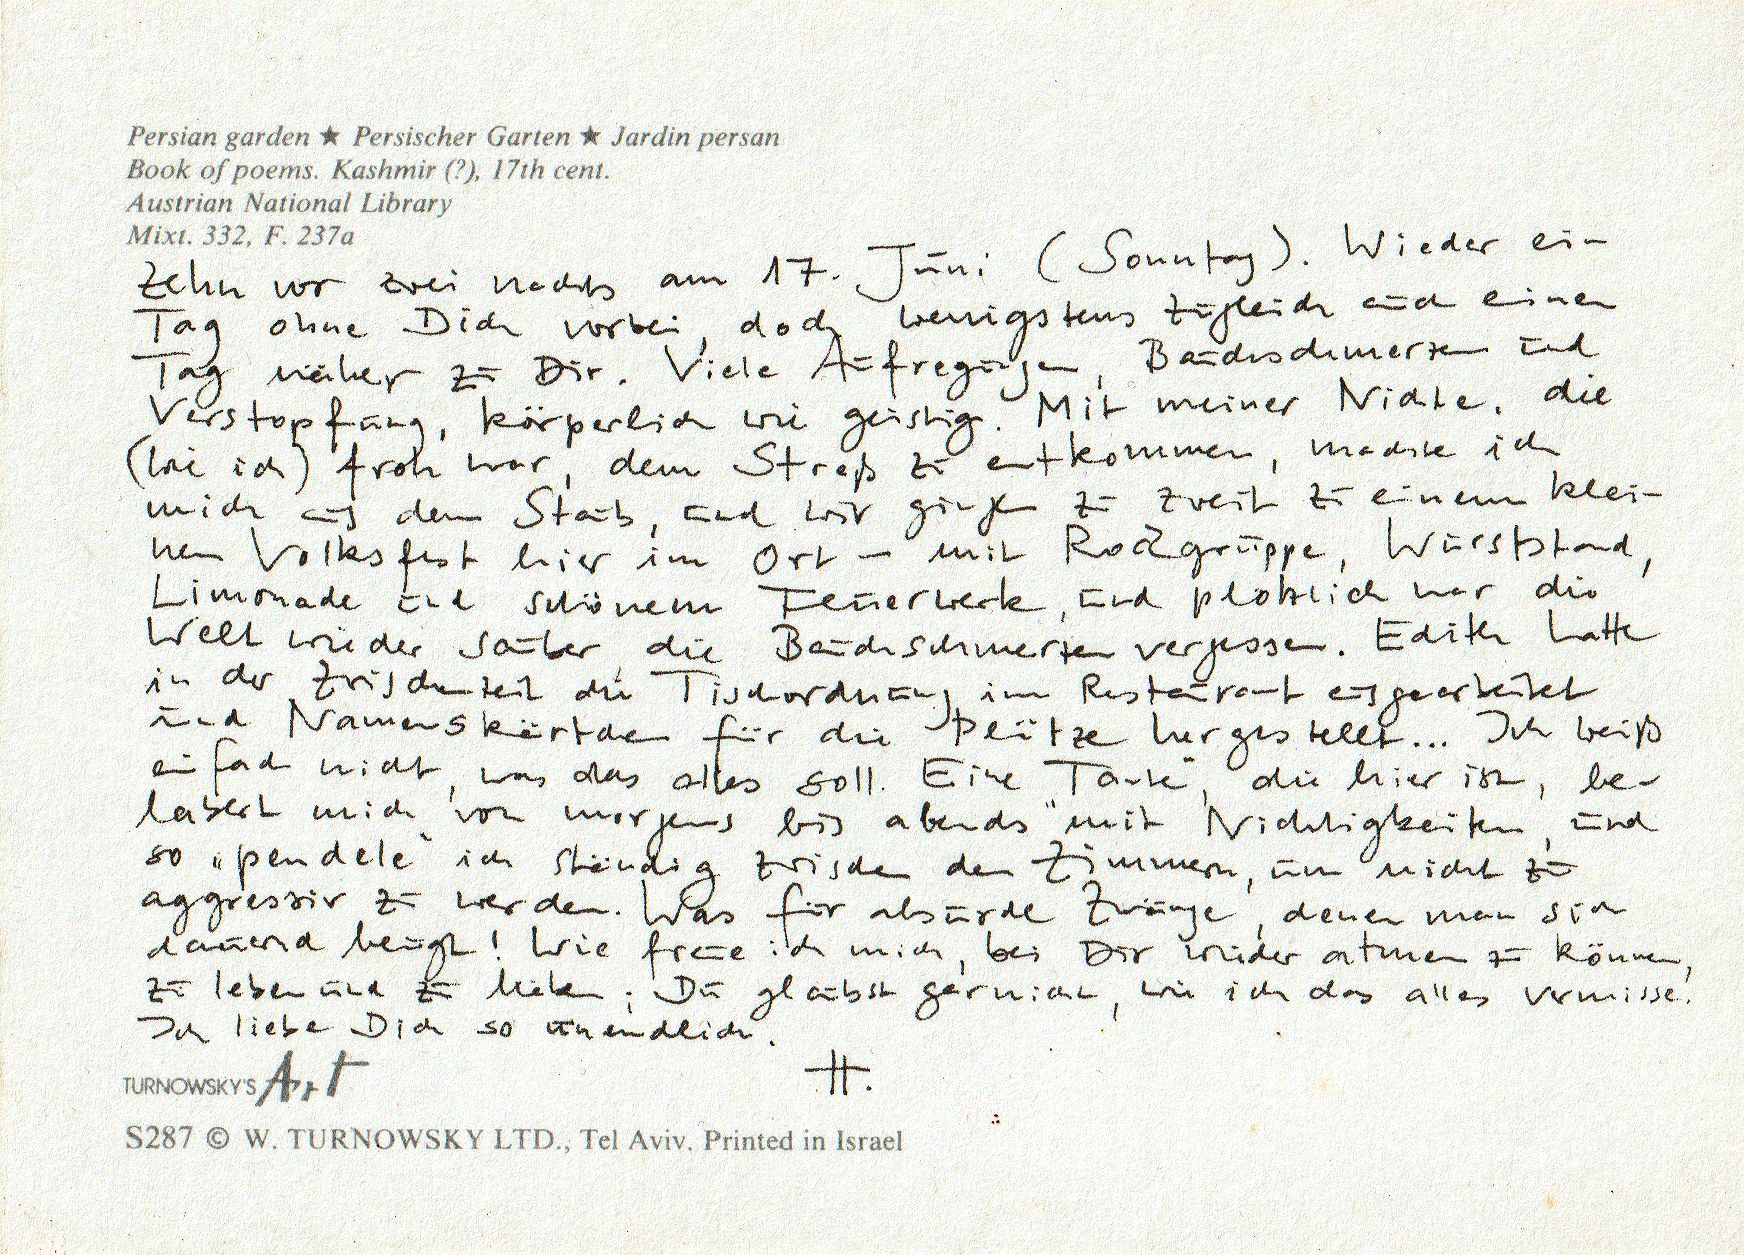 Persian garden ★ Persischer Garten ★ Jardin persan
Book of poems. Kashmir (?), 17th cent.
Austrian National Library
Mixt. 332, F. 237a
Zehn vor zwei nachts am 17. Juni (Sonntag). Wieder ein
Tag ohne Dich vorbei, doch wenigstens zugleich auch einen
Tag näher zu Dir. Viele Aufregungen, Bauchschmerzen und
Verstopfung, körperlich wie geistig. Mit meiner Nichte, die
(wie ich) froh war, dem Streß zu entkommen, machte ich
mich aus dem Staub, und wir gingen zu zweit zu einem klei-
nen Volksfest hier im Ort – mit Rockgruppe, Wurststand,
Limonade und schönem Feuerwerk, und plötzlich war die
Welt wieder sauber, die Bauchschmerzen vergessen. Edith hatte
in der Zwischenzeit die Tischordnung im Restaurant ausgearbeitet
und Namenskärtchen für die Plätze hergestellt... Ich weiß
einfach nicht, was das alles soll. Eine "Tante", die hier ist, be-
labert mich von morgens bis abends mit Nichtigkeiten, und
so „pendele“ ich ständig zwischen den Zimmern, um nicht zu
aggressiv zu werden. Was für absurde Zwänge, denen man sich
dauernd beugt! Wie freue ich mich, bei Dir wieder atmen zu können,
zu leben und zu lieben; Du glaubst gar nicht, wie ich das alles vermisse.
Ich liebe Dich so unendlich.
H.
TURNOWSKY'S Art
S287 © W. TURNOWSKY LTD., Tel Aviv. Printed in Israel